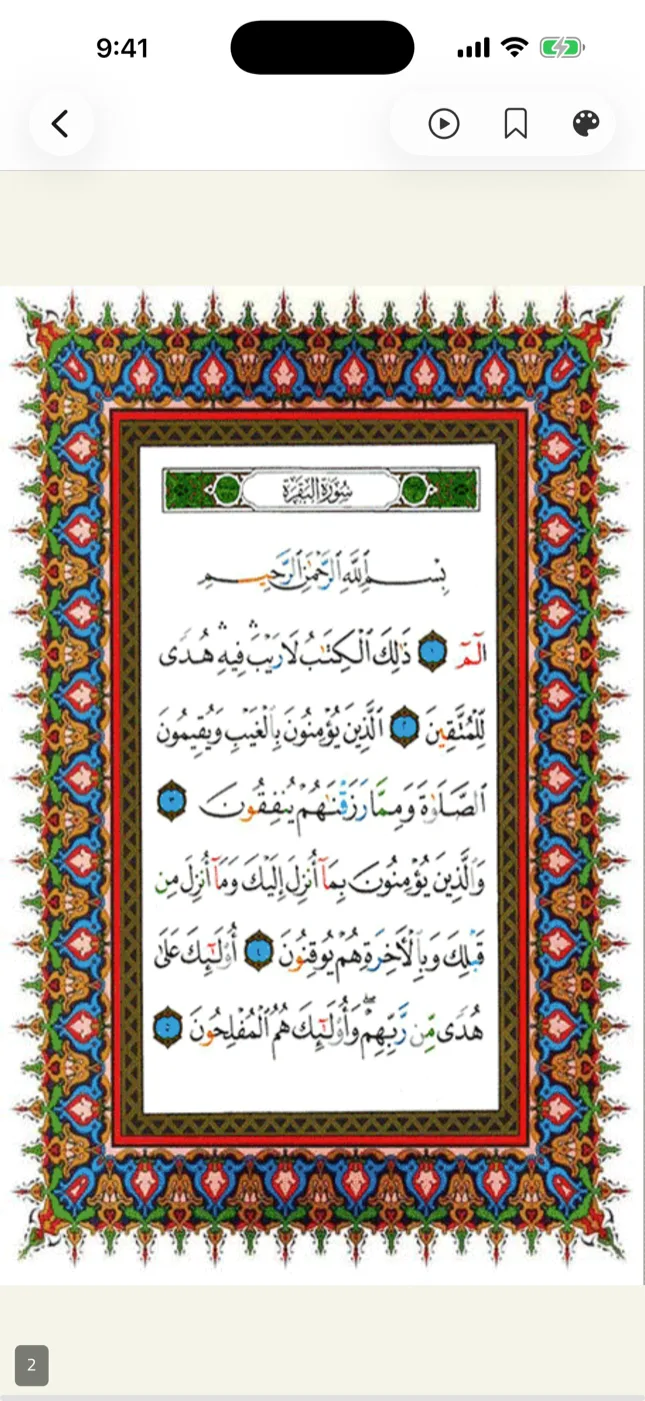 9:41
سُورَةُ البَقَرَةِ
بِسْمِ ٱللَّهِ ٱلرَّحْمَٰنِ ٱلرَّحِيمِ
الٓمٓ ١ ذَٰلِكَ ٱلْكِتَٰبُ لَا رَيْبَ ۛ فِيهِ ۛ هُدًى
لِّلْمُتَّقِينَ ٢ ٱلَّذِينَ يُؤْمِنُونَ بِٱلْغَيْبِ وَيُقِيمُونَ
ٱلصَّلَوٰةَ وَمِمَّا رَزَقْنَٰهُمْ يُنفِقُونَ ٣
وَٱلَّذِينَ يُؤْمِنُونَ بِمَآ أُنزِلَ إِلَيْكَ وَمَآ أُنزِلَ مِن
قَبْلِكَ وَبِٱلْأَخِرَةِ هُمْ يُوقِنُونَ ٤ أُو۟لَٰٓئِكَ عَلَىٰ
هُدًى مِّن رَّبِّهِمْ ۖ وَأُو۟لَٰٓئِكَ هُمُ ٱلْمُفْلِحُونَ ٥
2